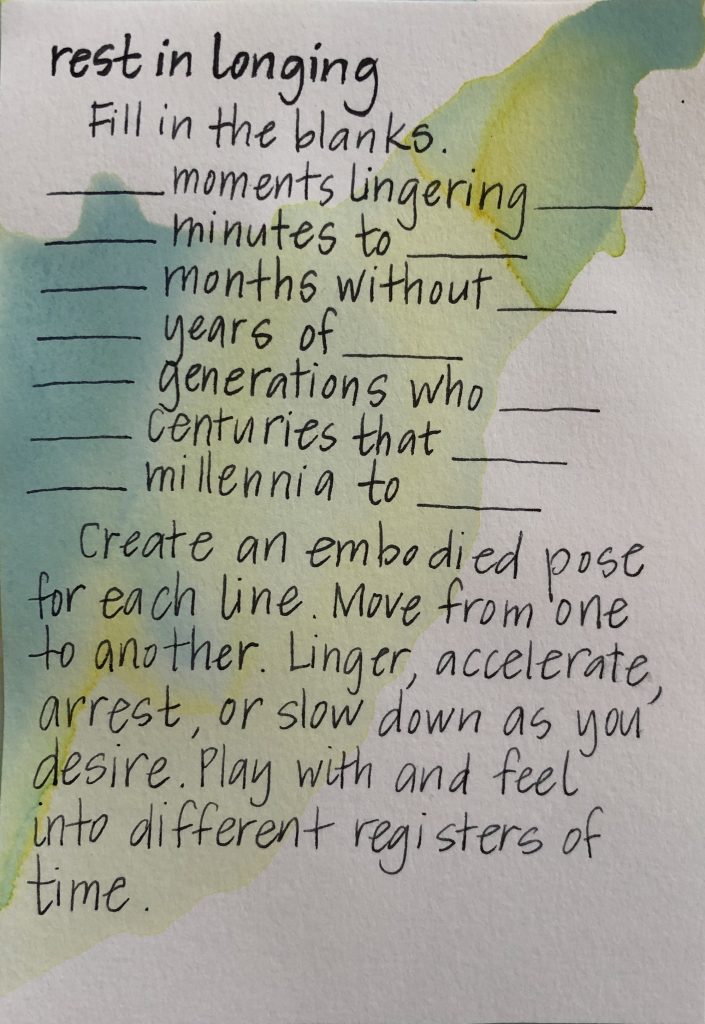 rest in longing
Fill in the blanks.
_____ moments lingering _____
_____ minutes to _____
_____ months without _____
_____ years of _____
_____ generations who _____
_____ centuries that _____
_____ millennia to _____
Create an embodied pose
for each line. Move from one
to another. Linger, accelerate,
arrest, or slow down as you
desire. Play with and feel
into different registers of
time.